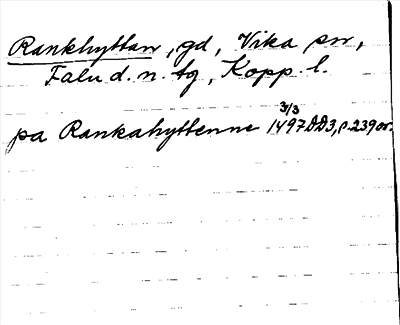 Rankhyttan, gd, Vika sn,
Falu d. n. tg, Kopp. l.
pa Rankahyttenne 3/3 1497 DD3, p. 239 or.